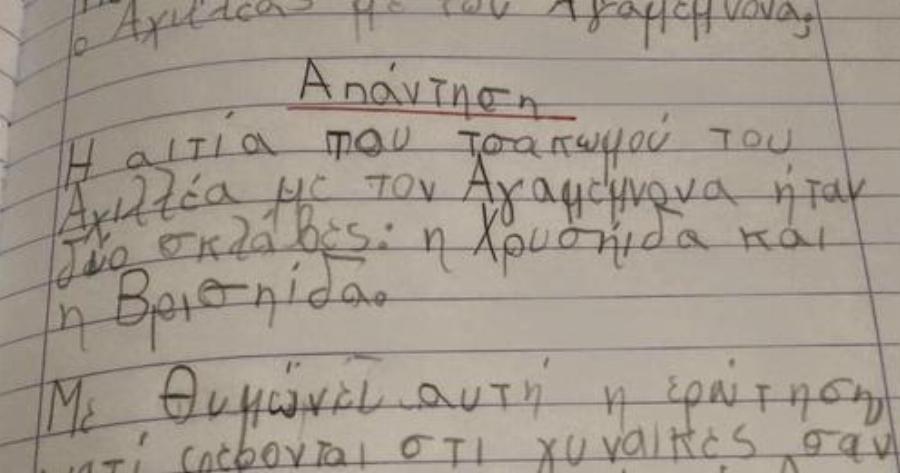 ο Αχιλλέας με τον Αγαμέμνονα;
Απάντηση
Η αιτία που τσακωμού του
Αχιλλέα με τον Αγαμέμνονα ήταν
δύο σκλάβες: η Χρυσηίδα και
η Βρισηίδα.
Με θυμώνει αυτή η ερώτηση,
γιατί στι γυναίκες σαν